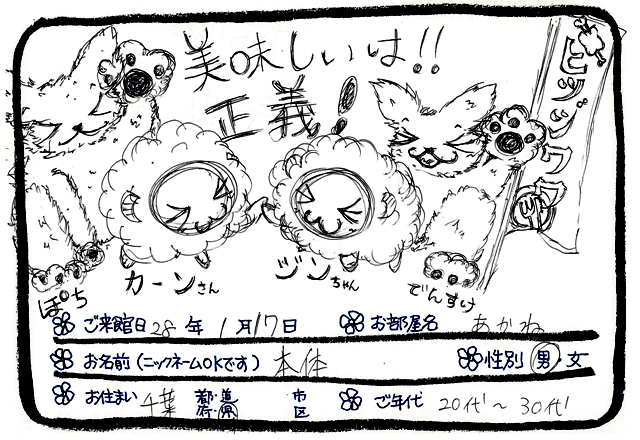 美味しいは!!
正義!
ぽち
カーンさん
ジンちゃん
でんすけ
ご来館日 28年 1月17日 お部屋名 あかね
お名前(ニックネームOKです) 本体 性別 男・女
お住まい 千葉 都・道 府・県 市 区 ご年代 20代~30代